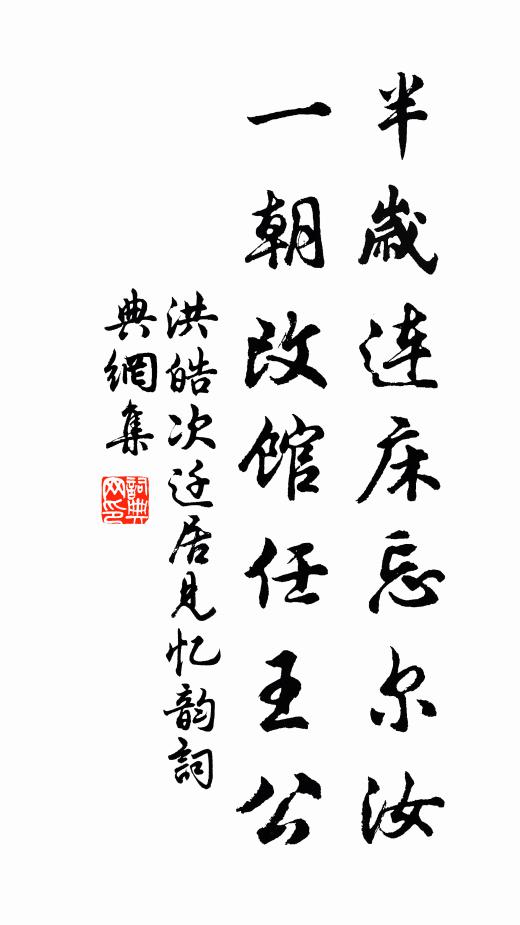 半歲连床忘尔汝
一朝改馆任王公
洪皓次迁居見忆韵詞
典網集
詞典网印